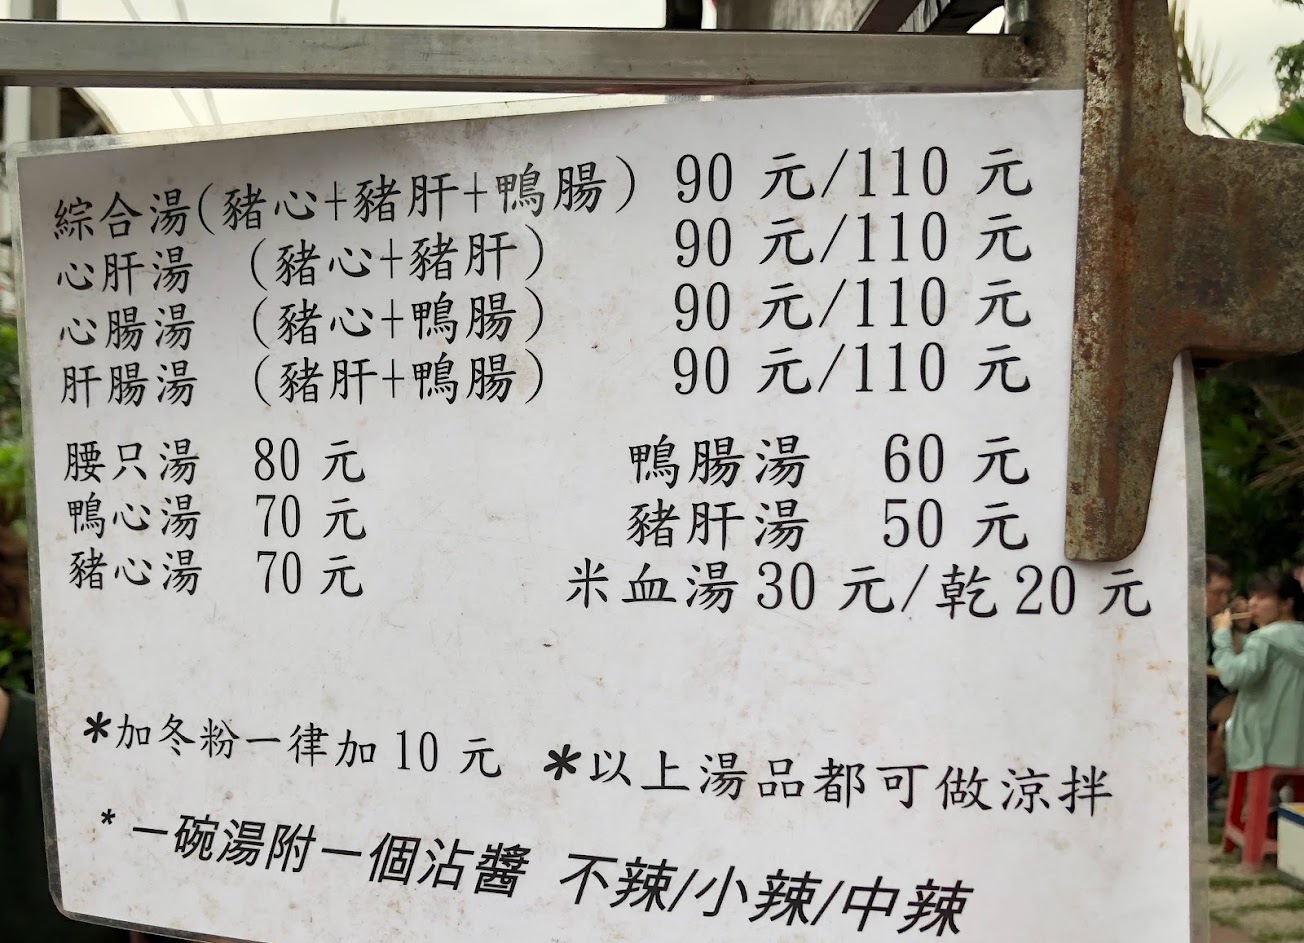 綜合湯(豬心+豬肝+鴨腸) 90 元/110 元
心肝湯 (豬心+豬肝) 90 元/110 元
心腸湯 (豬心+鴨腸) 90 元/110 元
肝腸湯 (豬肝+鴨腸) 90 元/110 元
腰只湯 80 元 鴨腸湯 60 元
鴨心湯 70 元 豬肝湯 50 元
豬心湯 70 元 米血湯 30 元/乾 20 元
*加冬粉一律加 10 元 *以上湯品都可做涼拌
*一碗湯附一個沾醬 不辣/小辣/中辣